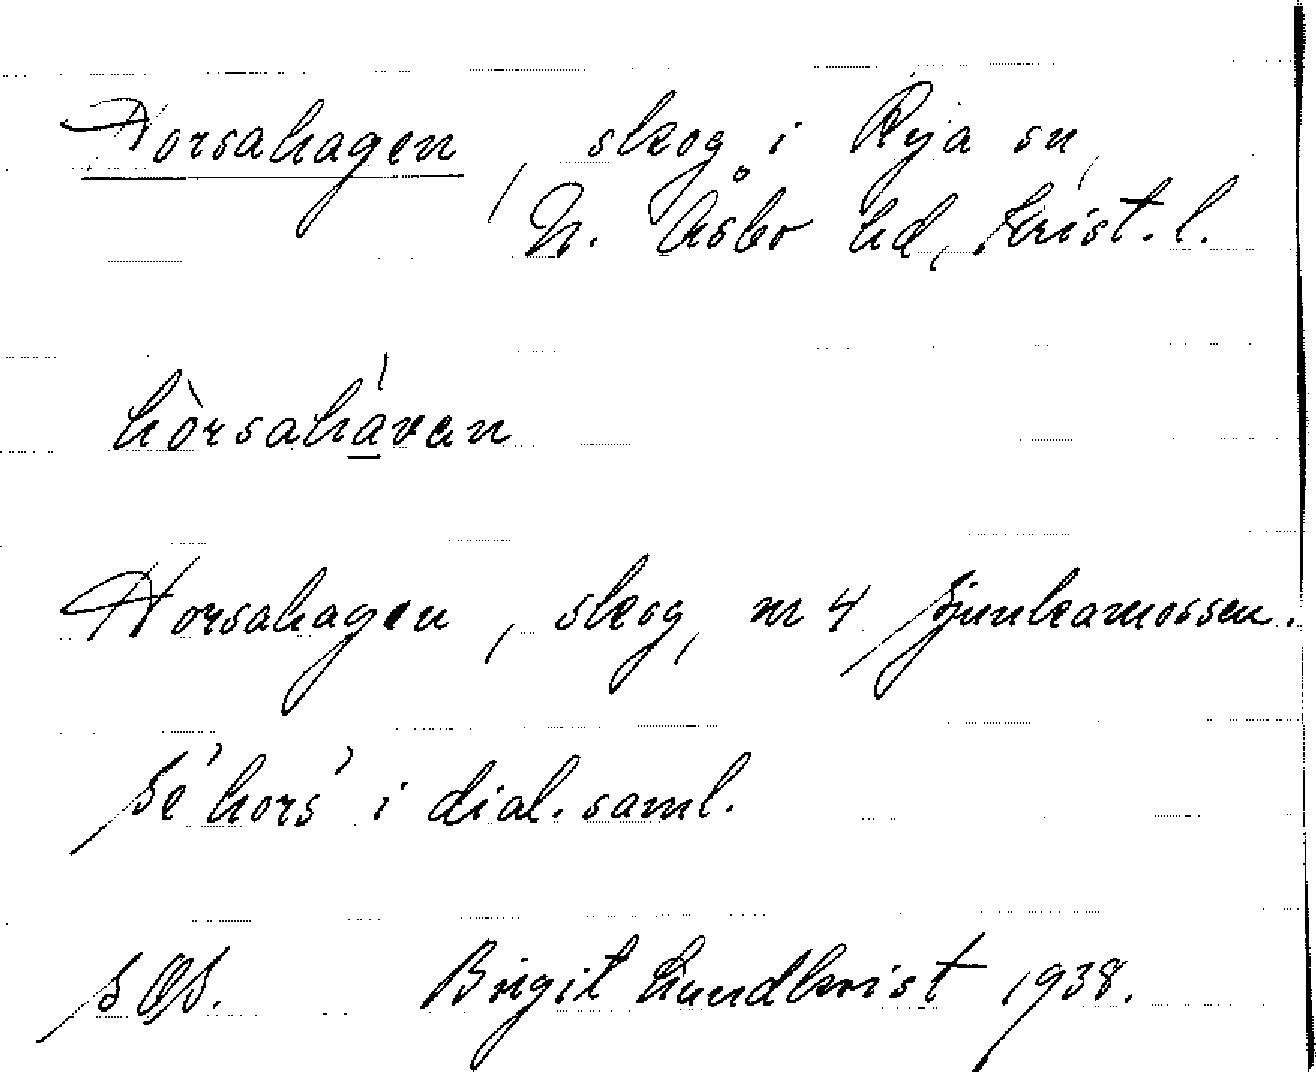 Horsahagen, skog i Rya sn,
N. Åsbo hd, Krist. l.
hòrsahávan
Horsahagen, skog, nr 4 Sjunkamossen.
Se 'hors' i dial. saml.
SOS. Birgit Lundkvist 1938.